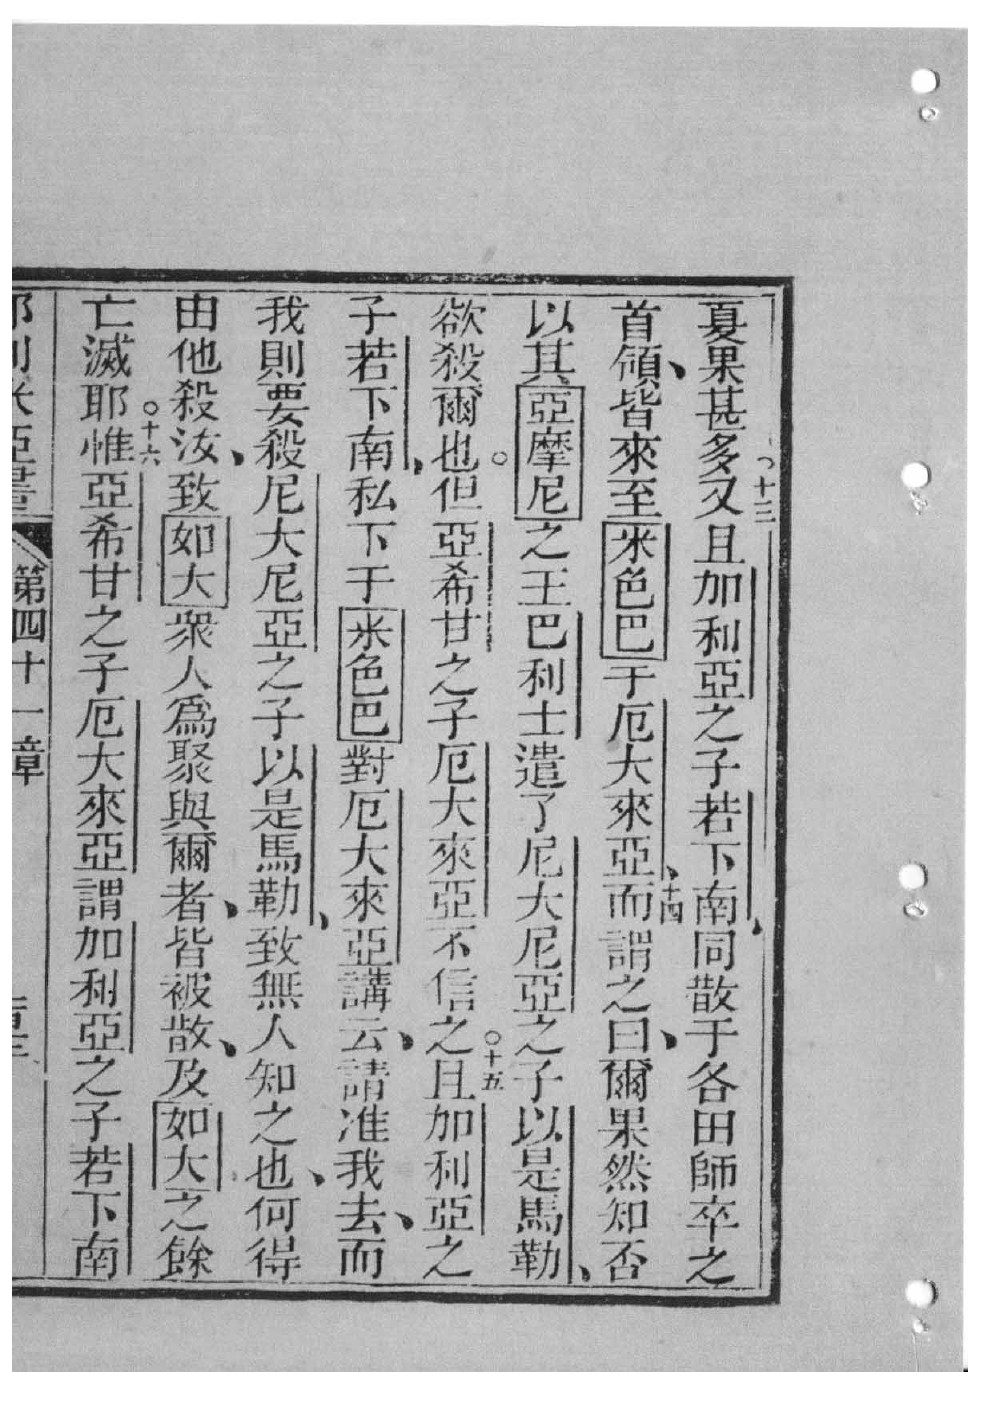 夏果甚多又○十三且加利亞之子若下南同散于各田師卒之
首領皆來至米色巴于厄大來亞十四而謂之曰爾果然知否
以其亞摩尼之王巴利士遣了尼大尼亞之子以是馬勒
欲殺爾也○但亞希甘之子厄大來亞不信之○十五且加利亞之
子若下南私下于米色巴對厄大來亞講云請准我去而
我則要殺尼大尼亞之子以是馬勒致無人知之也何得
由他殺汝致如大眾人為聚與爾者皆被散及如大之餘
亡滅耶○十六惟亞希甘之子厄大來亞謂加利亞之子若下南
耶利米亞書 第四十一章